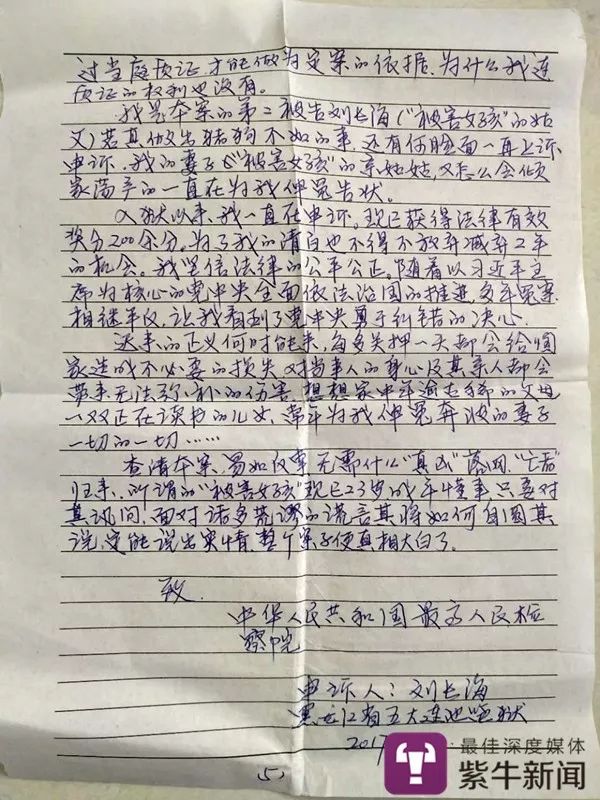 过当庭质证,才能做为定案的依据,为什么我连
质证的权利也没有。
我是本案的第二被告刘长海(“被害女孩”的姑
父)若真做出猪狗不如的事,还有何脸面一再上诉
申诉,我的妻子(“被害女孩”的亲姑姑)又怎么会倾
家荡产的一直在为我伸冤告状。
入狱以来,我一直在申诉。现已获得法律有效
奖分200余分,为了我的清白也不得不放弃减刑2年
的机会。我坚信法律的公平公正。随着以习近平主
席为核心的党中央全面依法治国的推进,多年冤案
相继平反,让我看到了党中央勇于纠错的决心。
迟来的正义何时能来,每多关押一天都会给国
家造成不必要的损失,对当事人的身心及其亲人都会
带来无法弥补的伤害,想想家中年逾七旬的父母
一双正在读书的儿女,常年为我伸冤奔波的妻子
一切的一切……
查清本案,易如反掌无需什么“真凶”落网、“亡者”
归来,所谓的“被害女孩”现已23岁成年懂事,只要对
其讯问,面对诸多荒谬的谎言其将如何自圆其
说,定能说出实情,整个案子便真相大白了。
致
中华人民共和国最高人民检
察院
申诉人:刘长海
黑龙江省五大连池监狱
2017
(5)
最佳深度媒体
紫牛新闻